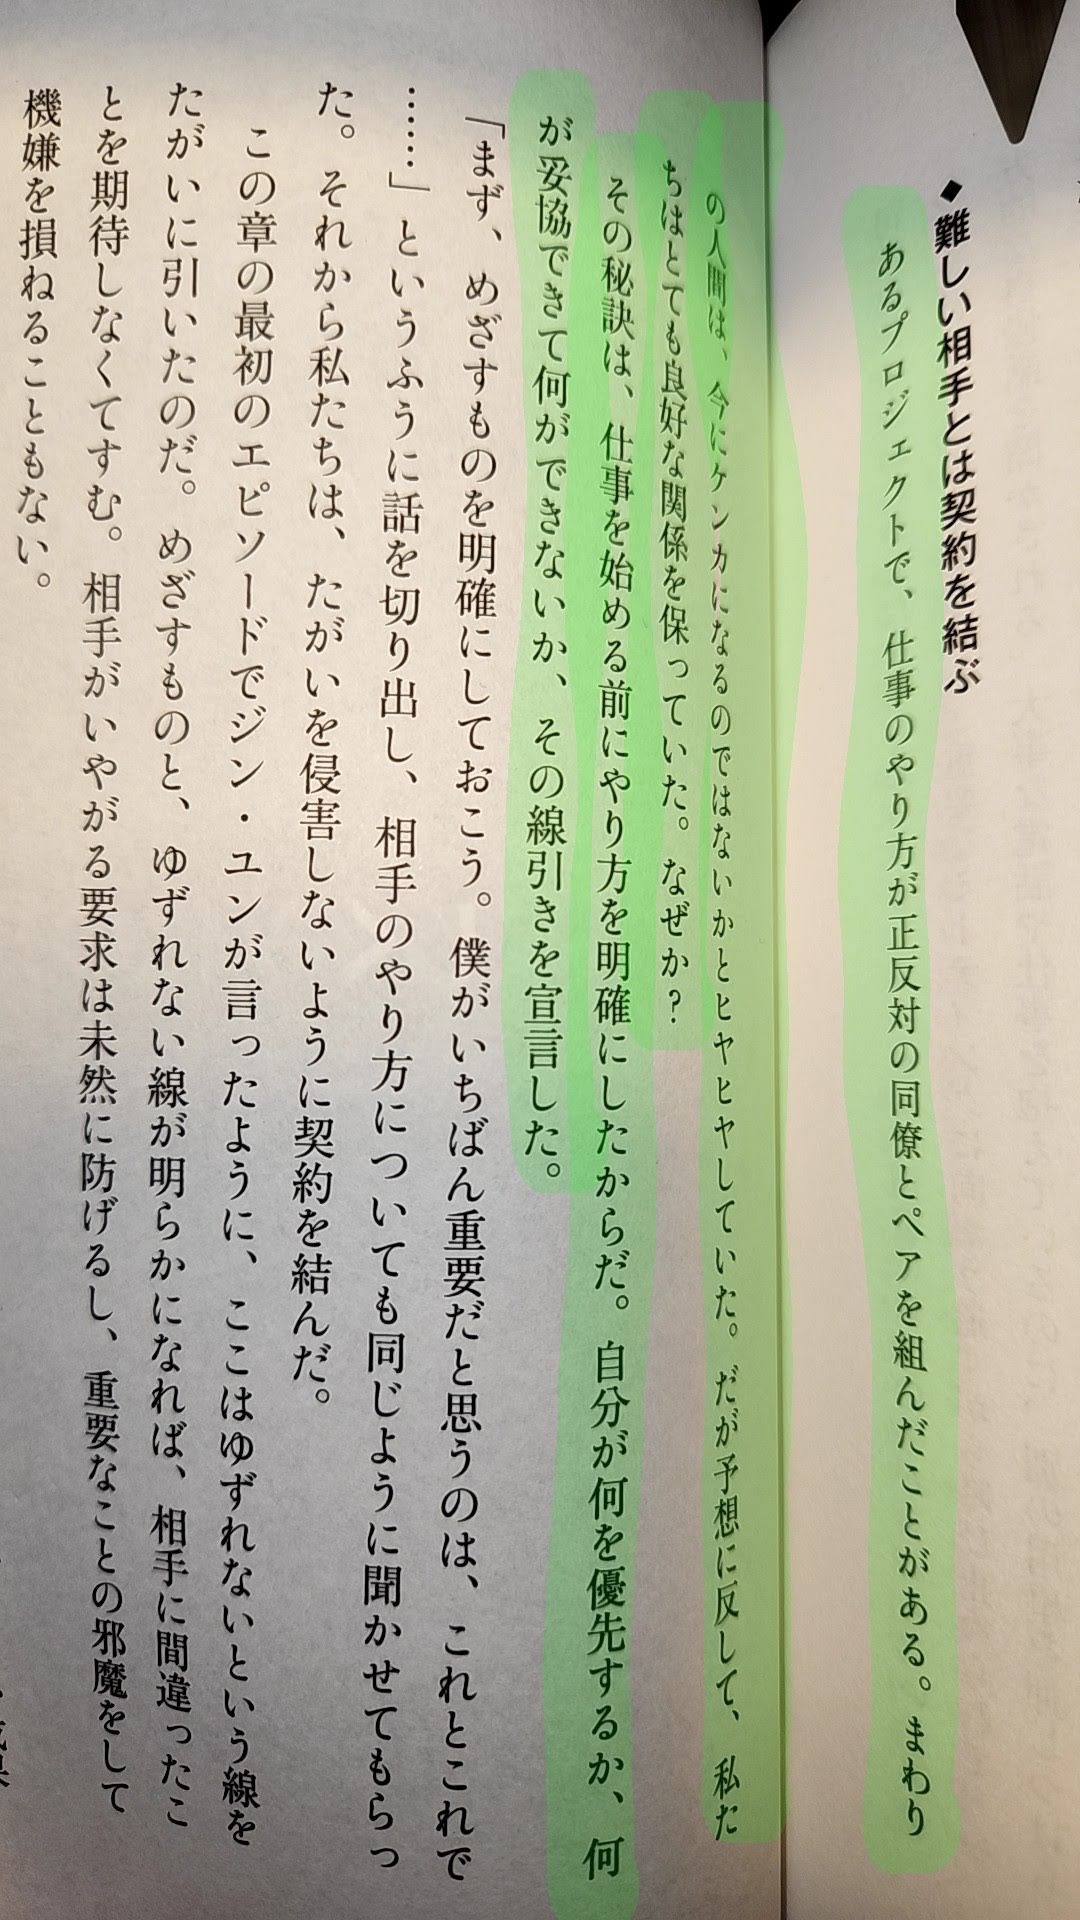 ◆難しい相手とは契約を結ぶ
あるプロジェクトで、仕事のやり方が正反対の同僚とペアを組んだことがある。まわり
の人間は、今にケンカになるのではないかとヒヤヒヤしていた。だが予想に反して、私た
ちはとても良好な関係を保っていた。なぜか?
その秘訣は、仕事を始める前にやり方を明確にしたからだ。自分が何を優先するか、何
が妥協できて何ができないか、その線引きを宣言した。
「まず、めざすものを明確にしておこう。僕がいちばん重要だと思うのは、これとこれで
……」というふうに話を切り出し、相手のやり方についても同じように聞かせてもらっ
た。それから私たちは、たがいを侵害しないように契約を結んだ。
この章の最初のエピソードでジン・ユンが言ったように、ここはゆずれないという線を
たがいに引いたのだ。めざすものと、ゆずれない線が明らかになれば、相手に間違ったこ
とを期待しなくてすむ。相手がいやがる要求は未然に防げるし、重要なことの邪魔をして
機嫌を損ねることもない。